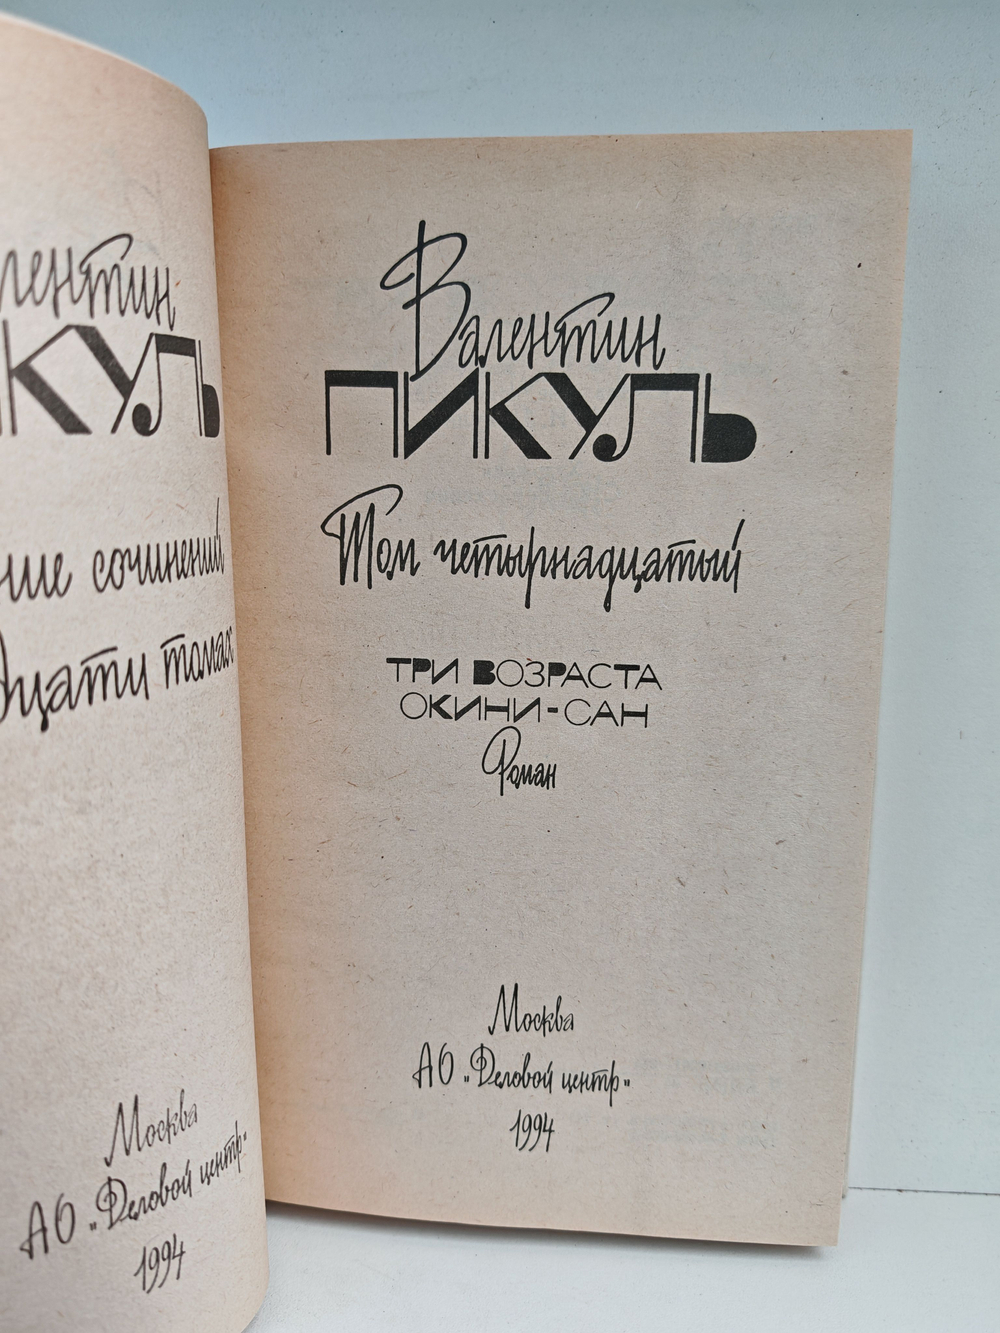 Валентин
ПИКУЛЬ
сочинений
томах
Москва
АО "Деловой центр"
1994
Валентин
ПИКУЛЬ
Том четырнадцатый
ТРИ ВОЗРАСТА
ОКИНИ-САН
Роман
Москва
АО "Деловой центр"
1994